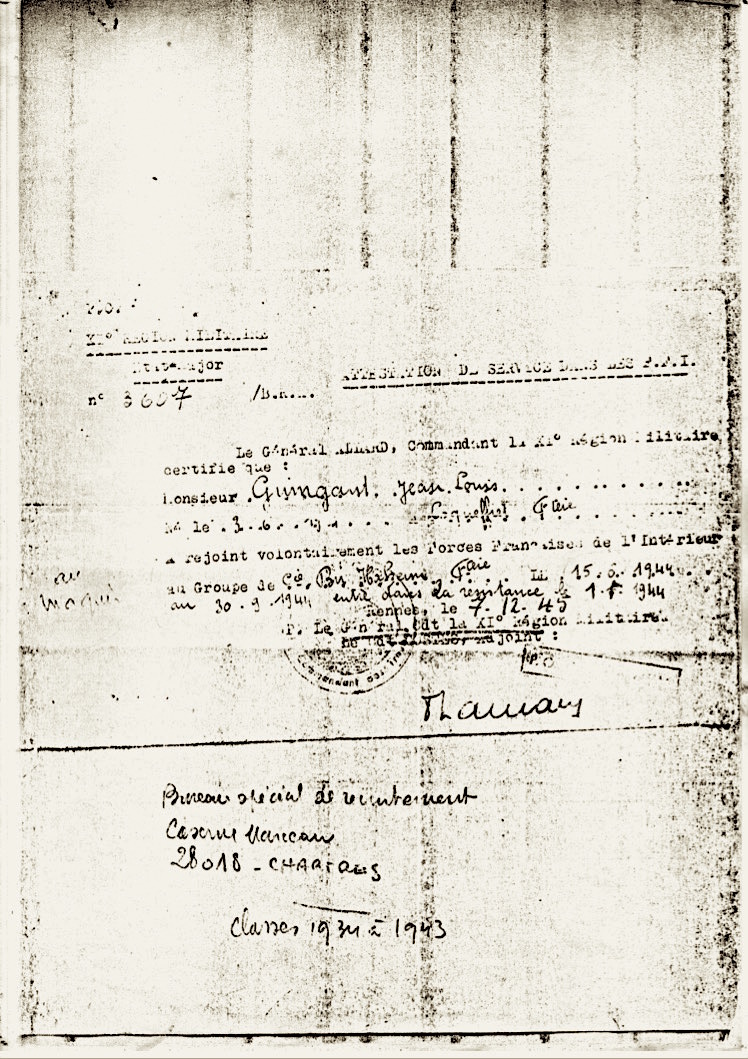 XI° REGION MILITAIRE
Etat-Major
n° 3607 /B.
ATTESTATION DE SERVICE DANS LES F.F.I.
Le Général ALLARD, Commandant la XI° Région Militaire,
certifie que :
Monsieur Guingant. Jean Louis
Né le . 3 . 6 .
a rejoint volontairement les Forces Françaises de l'Intérieur
au Groupe de Cie. LE 15.6.1944
au 30.9.1944 entré dans la résistance le 1.1.1944
au maquis
Rennes, le 7.12.45
P. Le Général Cdt la XI° Région Militaire
Adjoint :
Commandant
Bureau spécial de recrutement
Caserne Marceau
28018 - CHARTRES
Classes 1934 à 1943